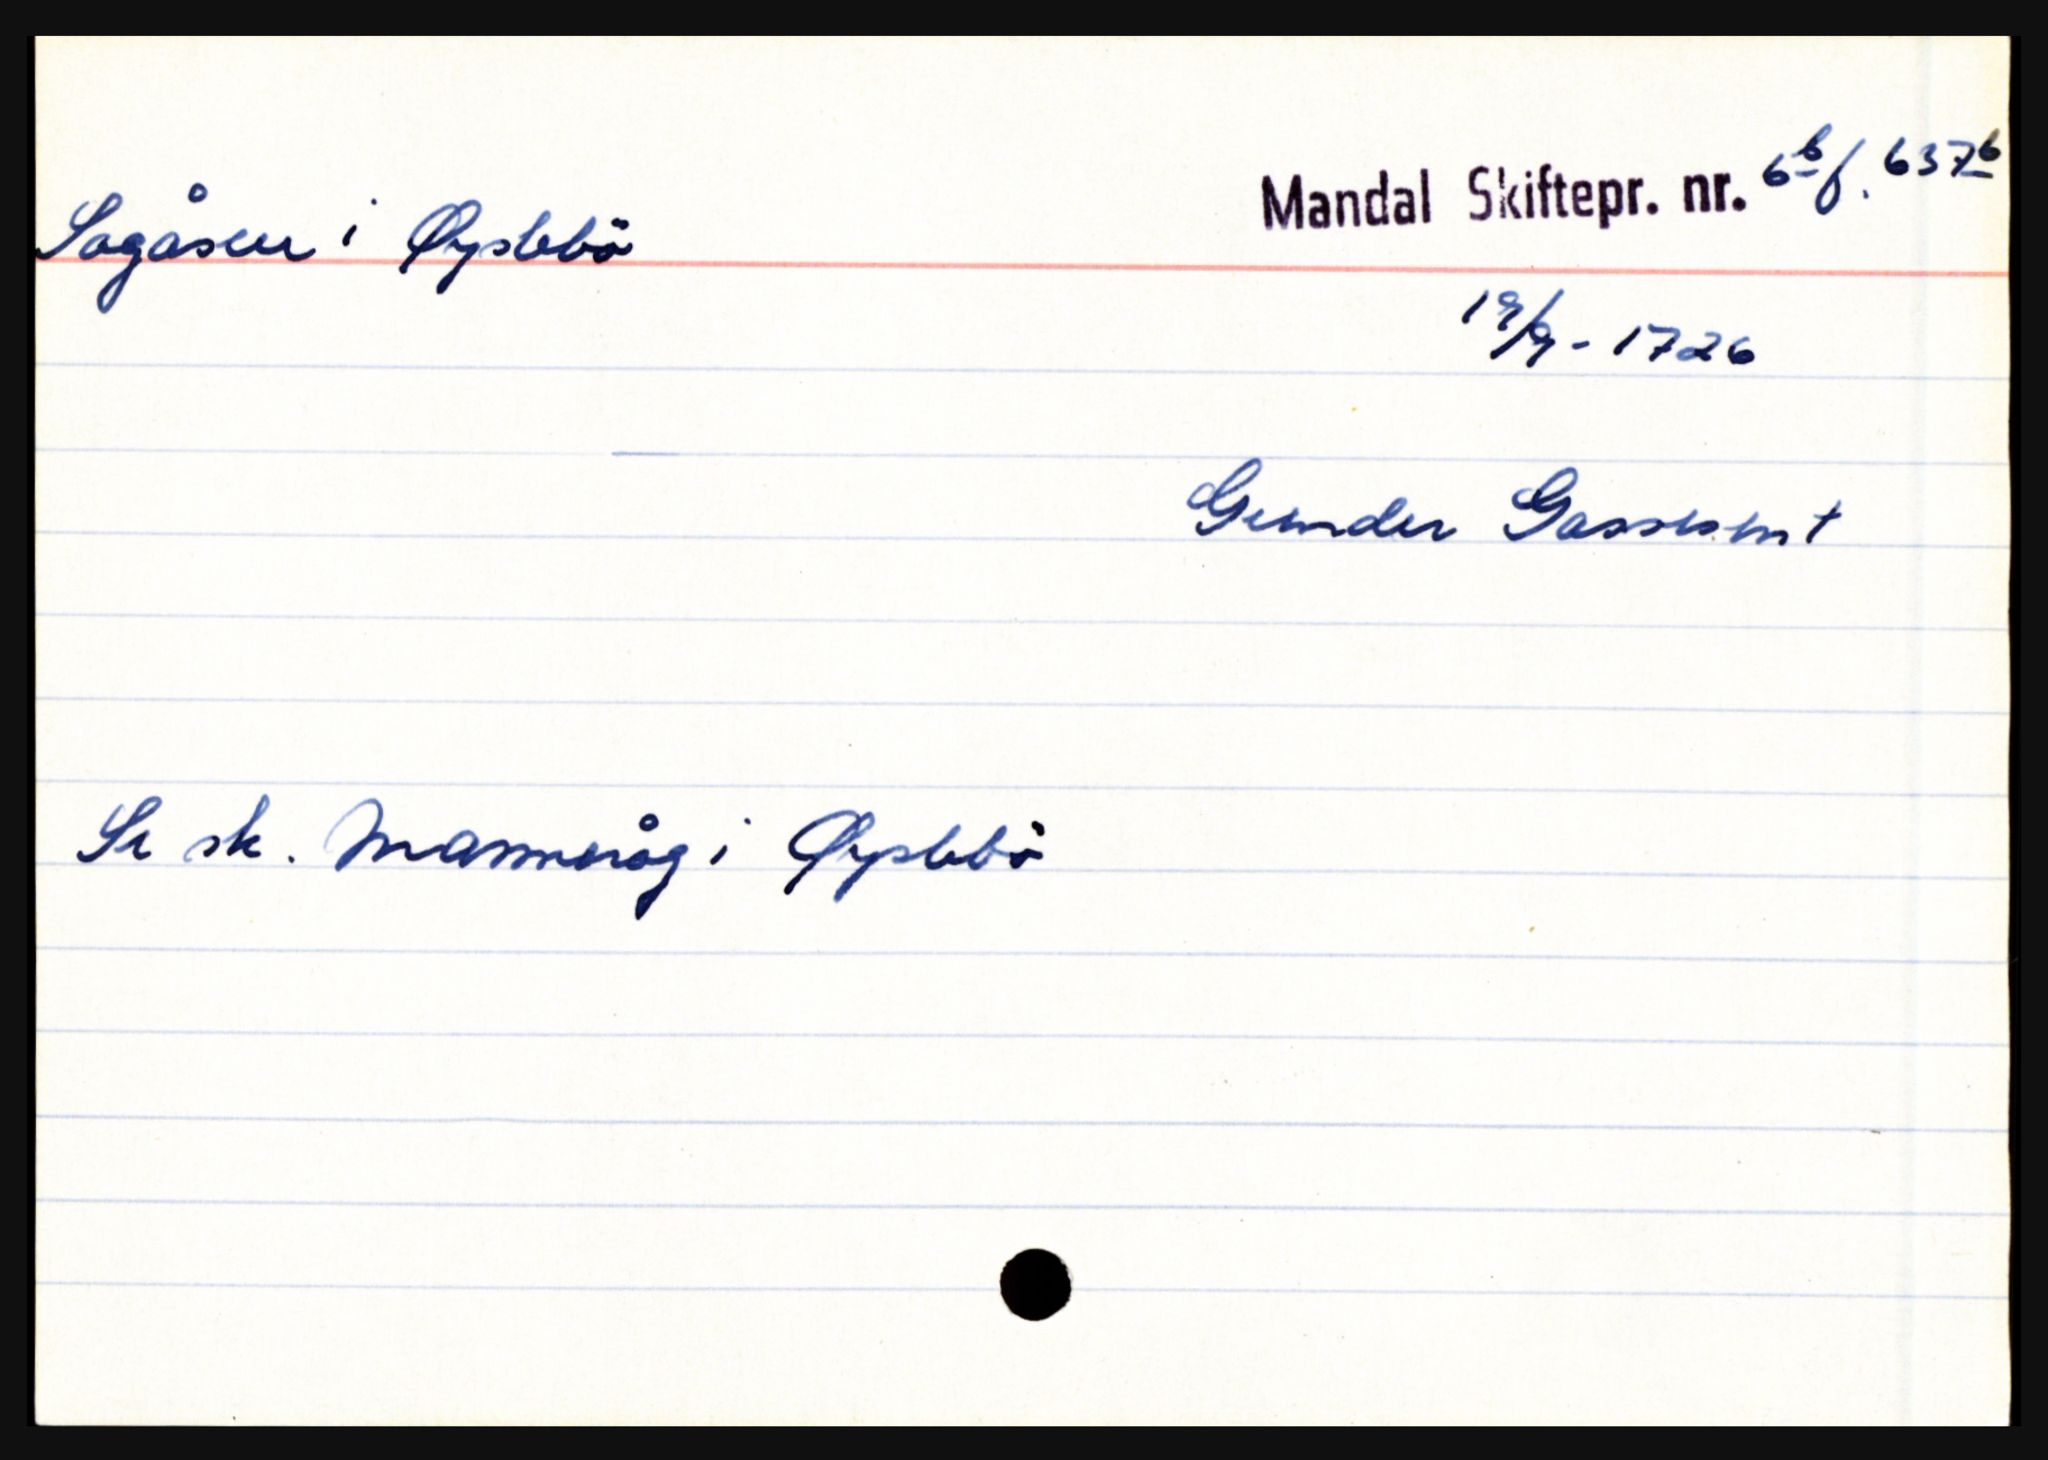 Mandal Skiftepr. nr. 6b f. 637b
Sagåsen i Øyslebö
19/9 - 1726
Gunder Gassesen t
Se sk. Manneråg i Øyslebö